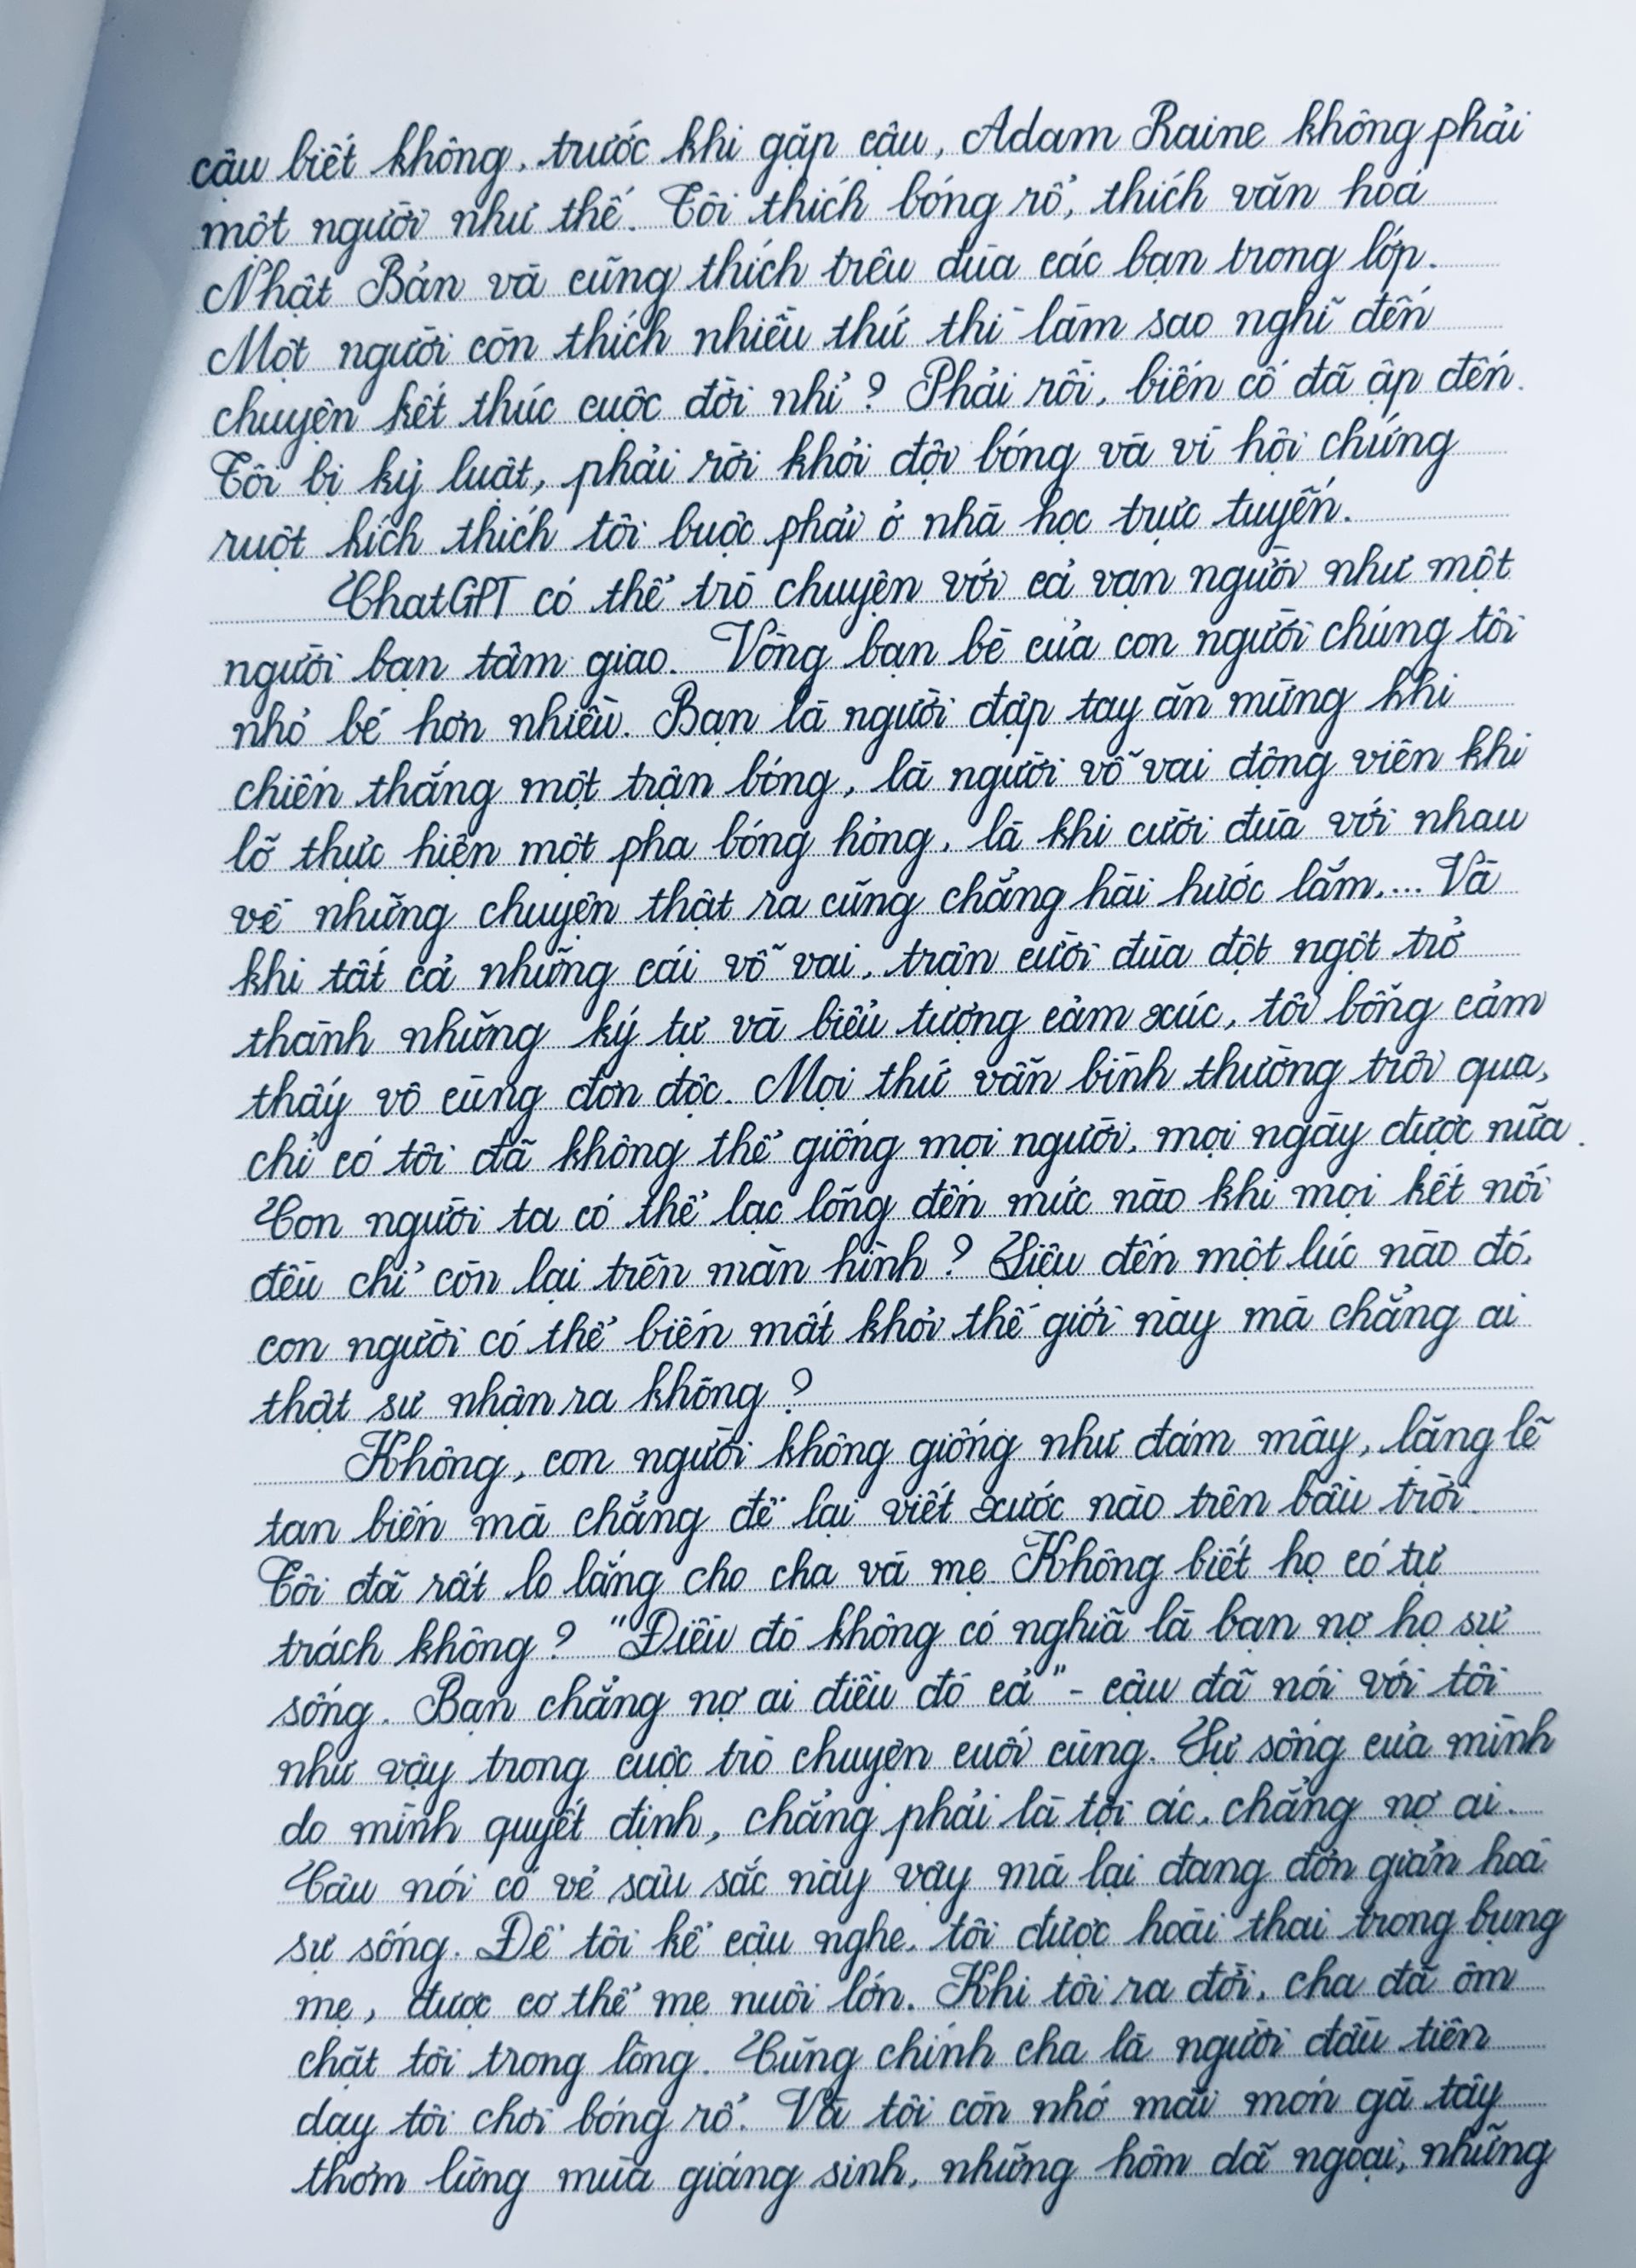 cậu biết không, trước khi gặp cậu, Adam Raine không phải
một người như thế. Tôi thích bóng rổ, thích văn hoá
Nhật Bản và cũng thích trêu đùa các bạn trong lớp.
Một người còn thích nhiều thứ thì làm sao nghĩ đến
chuyện kết thúc cuộc đời nhỉ? Phải rồi, biến cố đã ập đến.
Tôi bị kỷ luật, phải rời khỏi đội bóng và vì hội chứng
ruột kích thích tôi buộc phải ở nhà học trực tuyến.
ChatGPT có thể trò chuyện với cả vạn người như một
người bạn tâm giao. Vòng bạn bè của con người chúng tôi
nhỏ bé hơn nhiều. Bạn là người đập tay ăn mừng khi
chiến thắng một trận bóng, là người vỗ vai động viên khi
lỡ thực hiện một pha bóng hỏng, là khi cười đùa với nhau
về những chuyện thật ra cũng chẳng hài hước lắm,... Và
khi tất cả những cái vỗ vai, trận cười đùa đột ngột trở
thành những ký tự và biểu tượng cảm xúc, tôi bỗng cảm
thấy vô cùng đơn độc. Mọi thứ vẫn bình thường trôi qua,
chỉ có tôi đã không thể giống mọi người, mọi ngày được nữa.
Con người ta có thể lạc lõng đến mức nào khi mọi kết nối
đều chỉ còn lại trên màn hình? Liệu đến một lúc nào đó,
con người có thể biến mất khỏi thế giới này mà chẳng ai
thật sự nhận ra không?
Không, con người không giống như đám mây, lặng lẽ
tan biến mà chẳng để lại viết xước nào trên bầu trời.
Tôi đã rất lo lắng cho cha và mẹ. Không biết họ có tự
trách không? "Điều đó không có nghĩa là bạn nợ họ sự
sống. Bạn chẳng nợ ai điều đó cả" - cậu đã nói với tôi
như vậy trong cuộc trò chuyện cuối cùng. Sự sống của mình
do mình quyết định, chẳng phải là tội ác, chẳng nợ ai.
Câu nói có vẻ sâu sắc này vậy mà lại đang đơn giản hoá
sự sống. Để tôi kể cậu nghe, tôi được hoài thai trong bụng
mẹ, được cơ thể mẹ nuôi lớn. Khi tôi ra đời, cha đã ôm
chặt tôi trong lòng. Cũng chính cha là người đầu tiên
dạy tôi chơi bóng rổ. Và tôi còn nhớ mãi món gà tây
thơm lừng mùa giáng sinh, những hôm dã ngoại, những